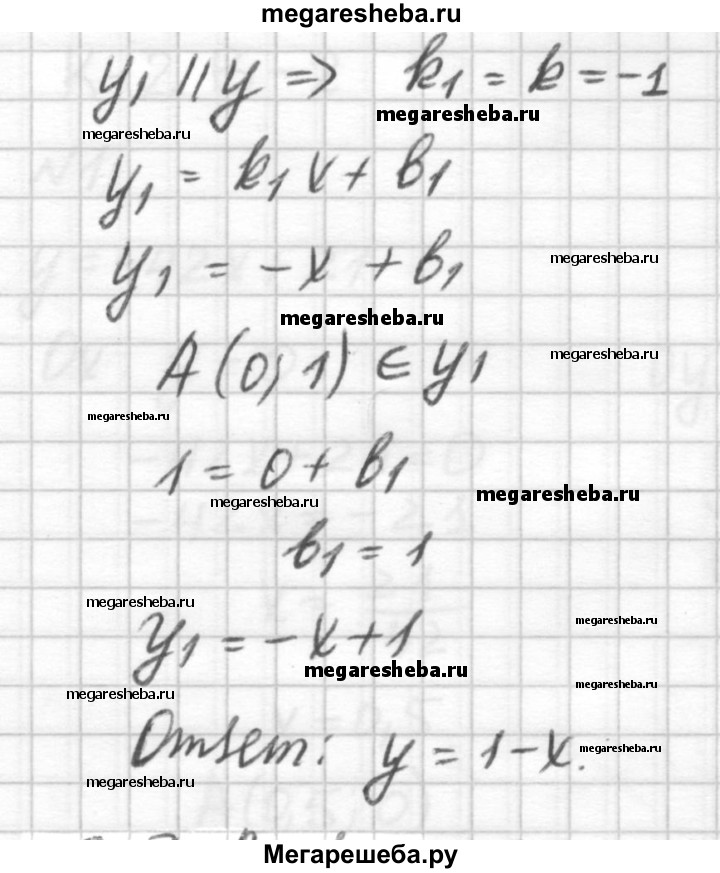 megaresheba.ru
y₁ || y => k₁ = k = -1
megaresheba.ru
megaresheba.ru
y₁ = k₁x + b₁
y₁ = -x + b₁
megaresheba.ru
megaresheba.ru
A(0; 1) ∈ y₁
megaresheba.ru
megaresheba.ru
1 = 0 + b₁
megaresheba.ru
megaresheba.ru
b₁ = 1
megaresheba.ru
megaresheba.ru
y₁ = -x + 1
megaresheba.ru
megaresheba.ru
megaresheba.ru
Ответ: y = 1 - x.
megaresheba.ru
megaresheba.ru
Мегарешеба.ру